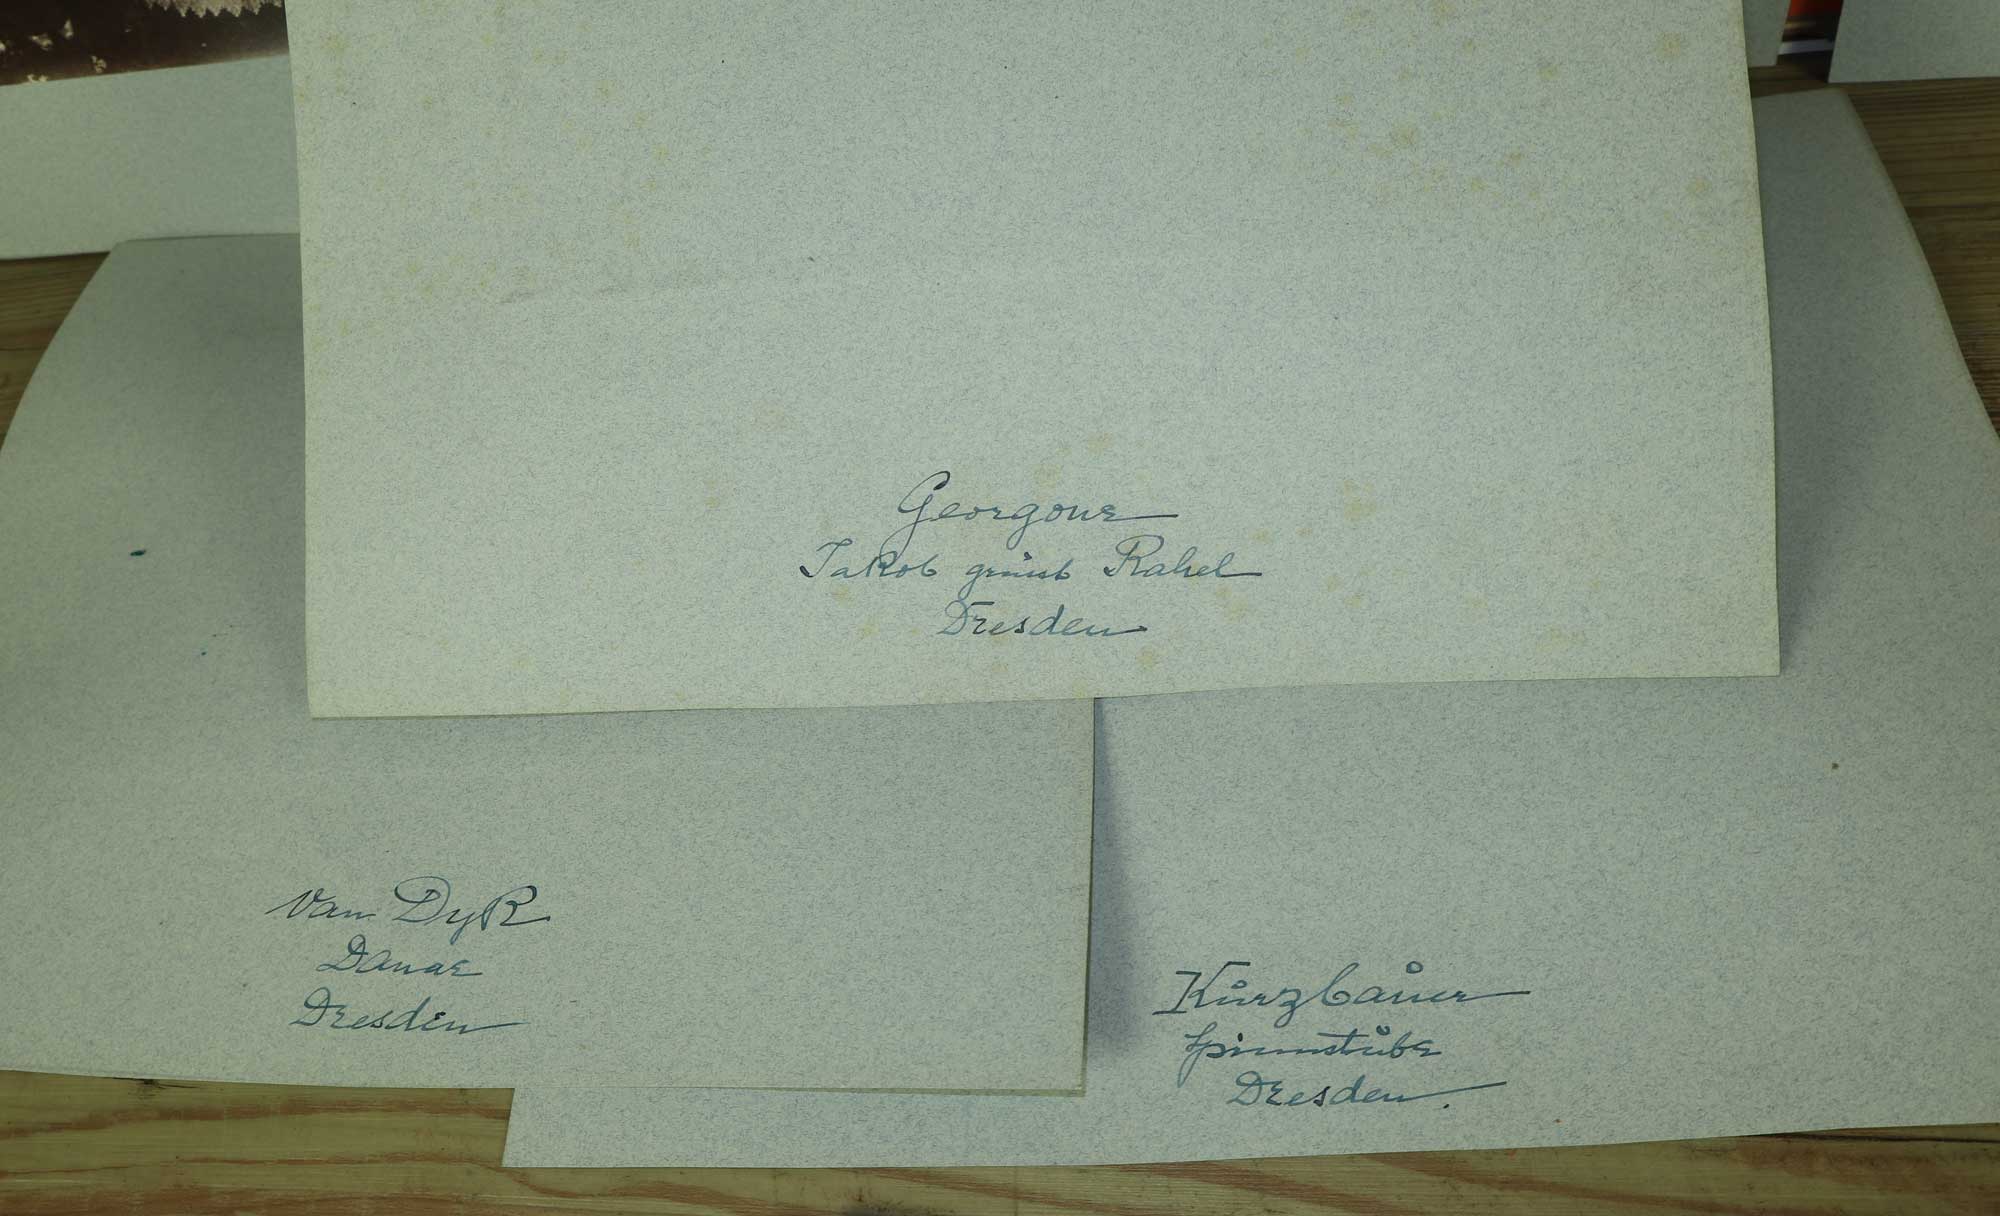 Georgone
Jakob grüsst Rahel
Dresden
Van Dyk
Danae
Dresden
Kurzbauer
Spinnstube
Dresden.